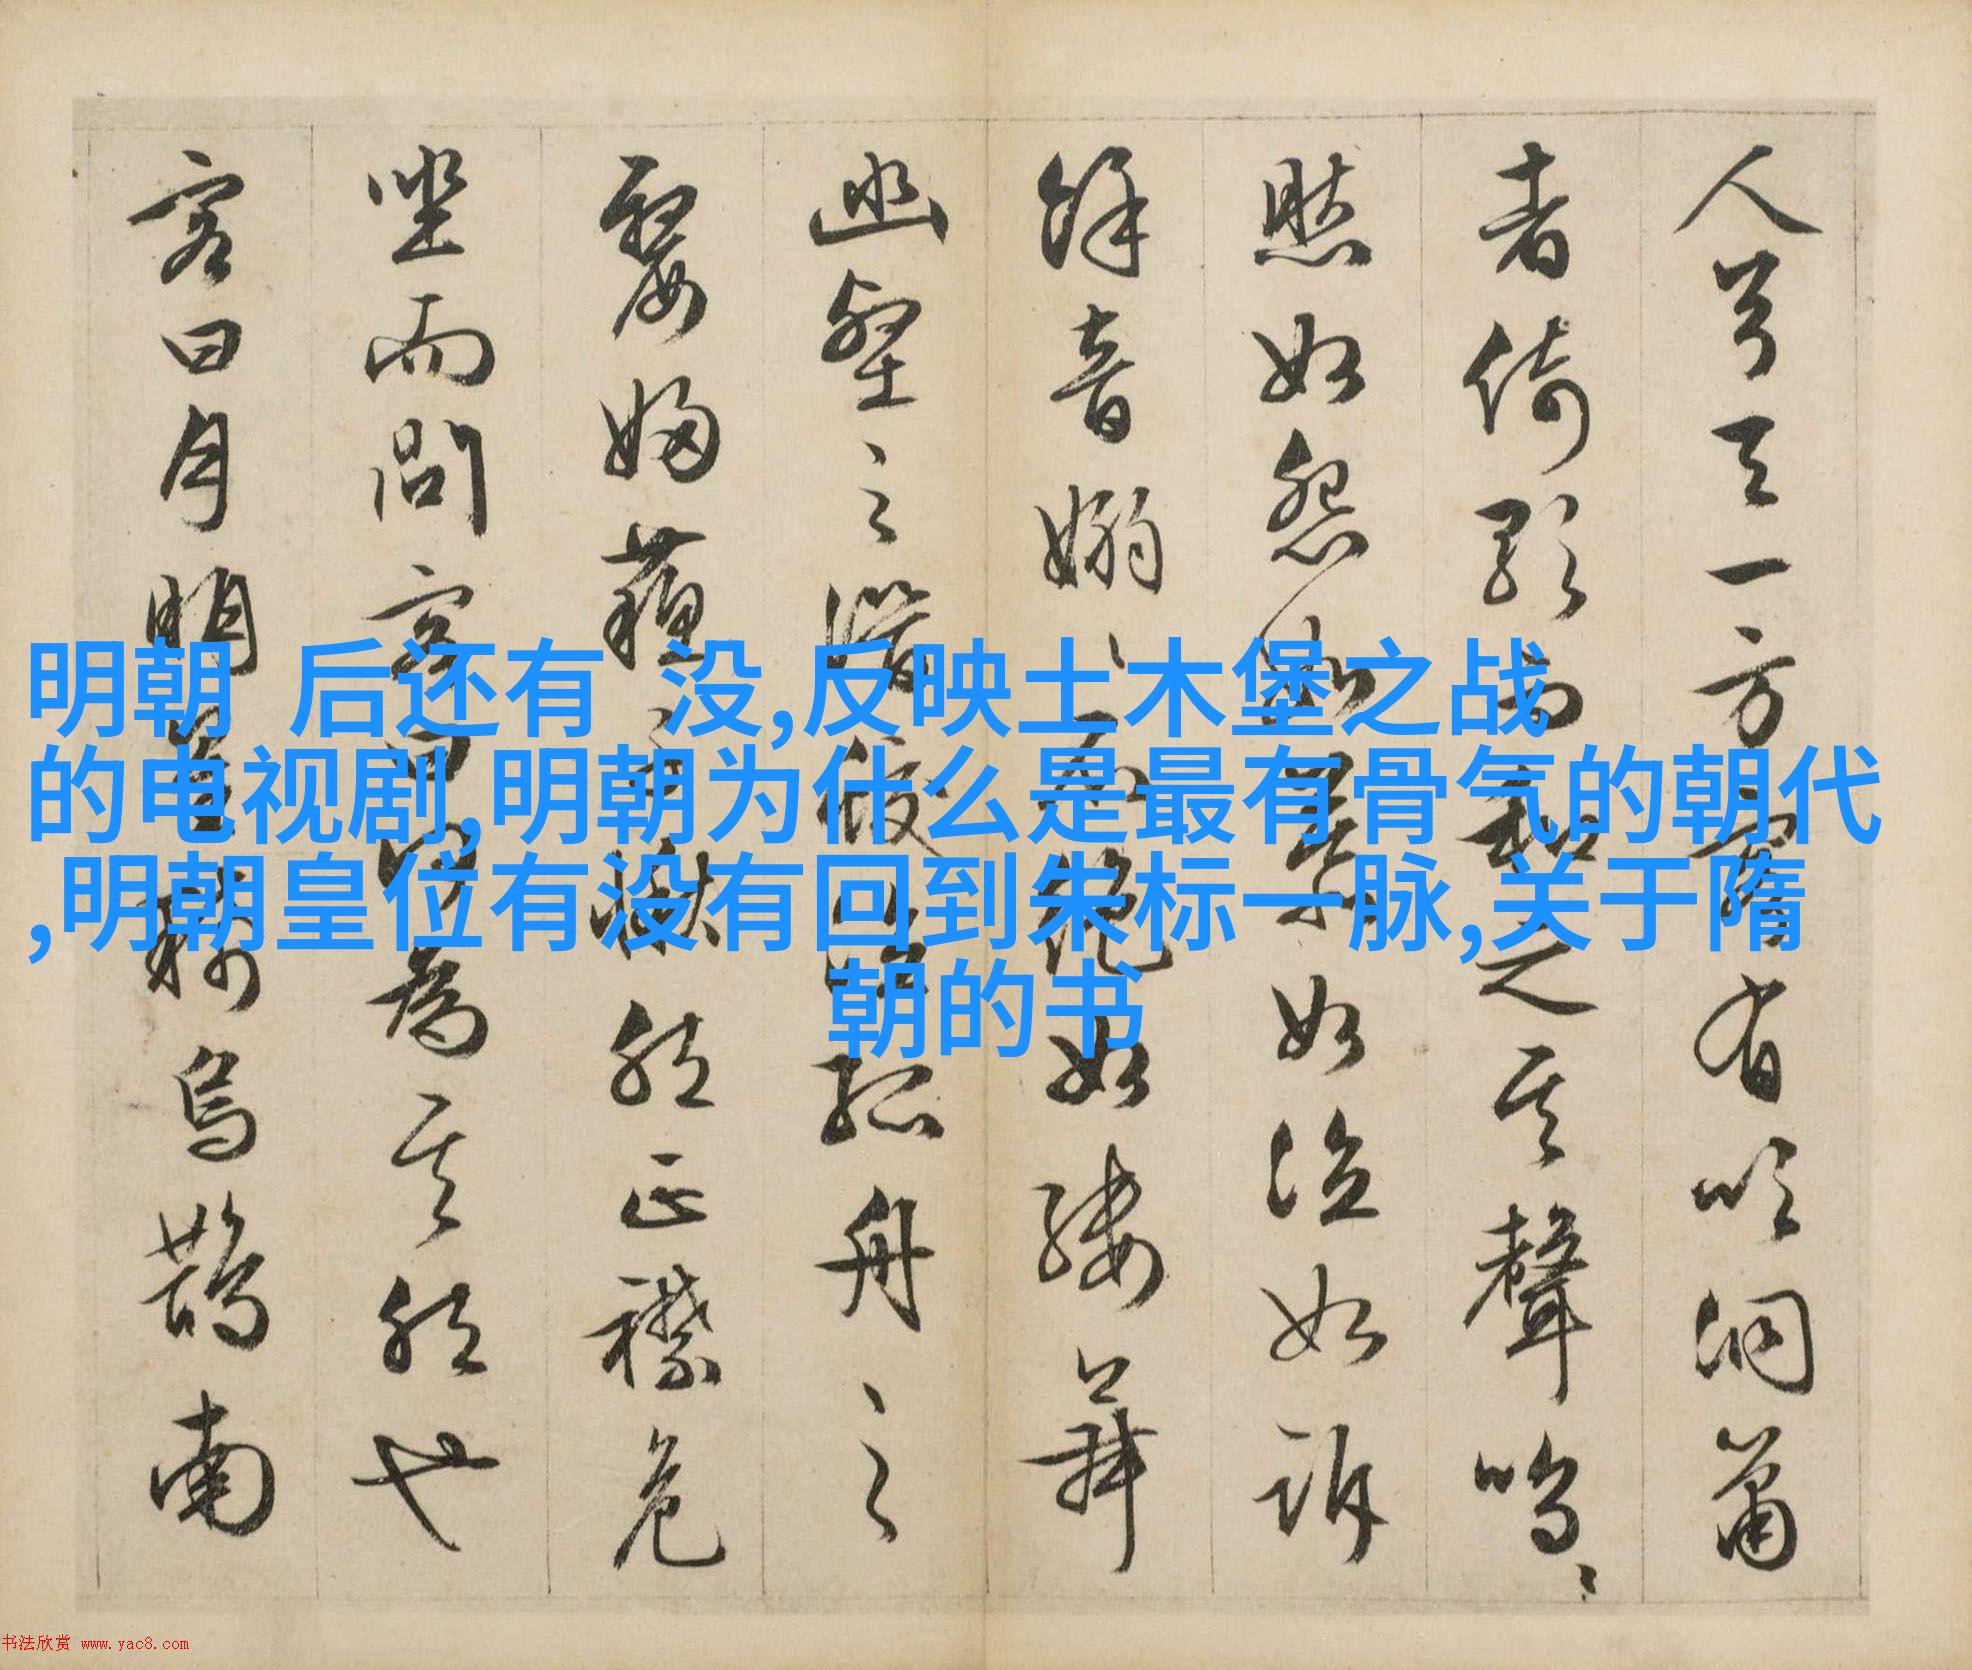 人兮天一方客有吹洞萧
者倚歌而和之其聲嗚〻
然如怨如慕如泣如訴
餘音嫋〻不絕如縷舞
幽壑之潜蛟泣孤舟之
嫠婦蘓子愀然正襟危
坐而問客曰何為其然也
客曰月明星稀烏鵲南
明朝 后还有 没,反映土木堡之战
的电视剧,明朝为什么是最有骨气的朝代
,明朝皇位有没有回到朱标一脉,关于隋
朝的书
书法欣赏 www.yac8.com